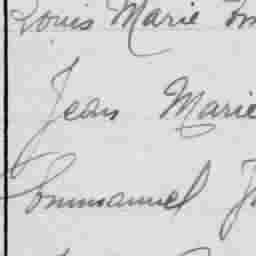 Louis Marie Em
Jean Marie
Emmanuel J